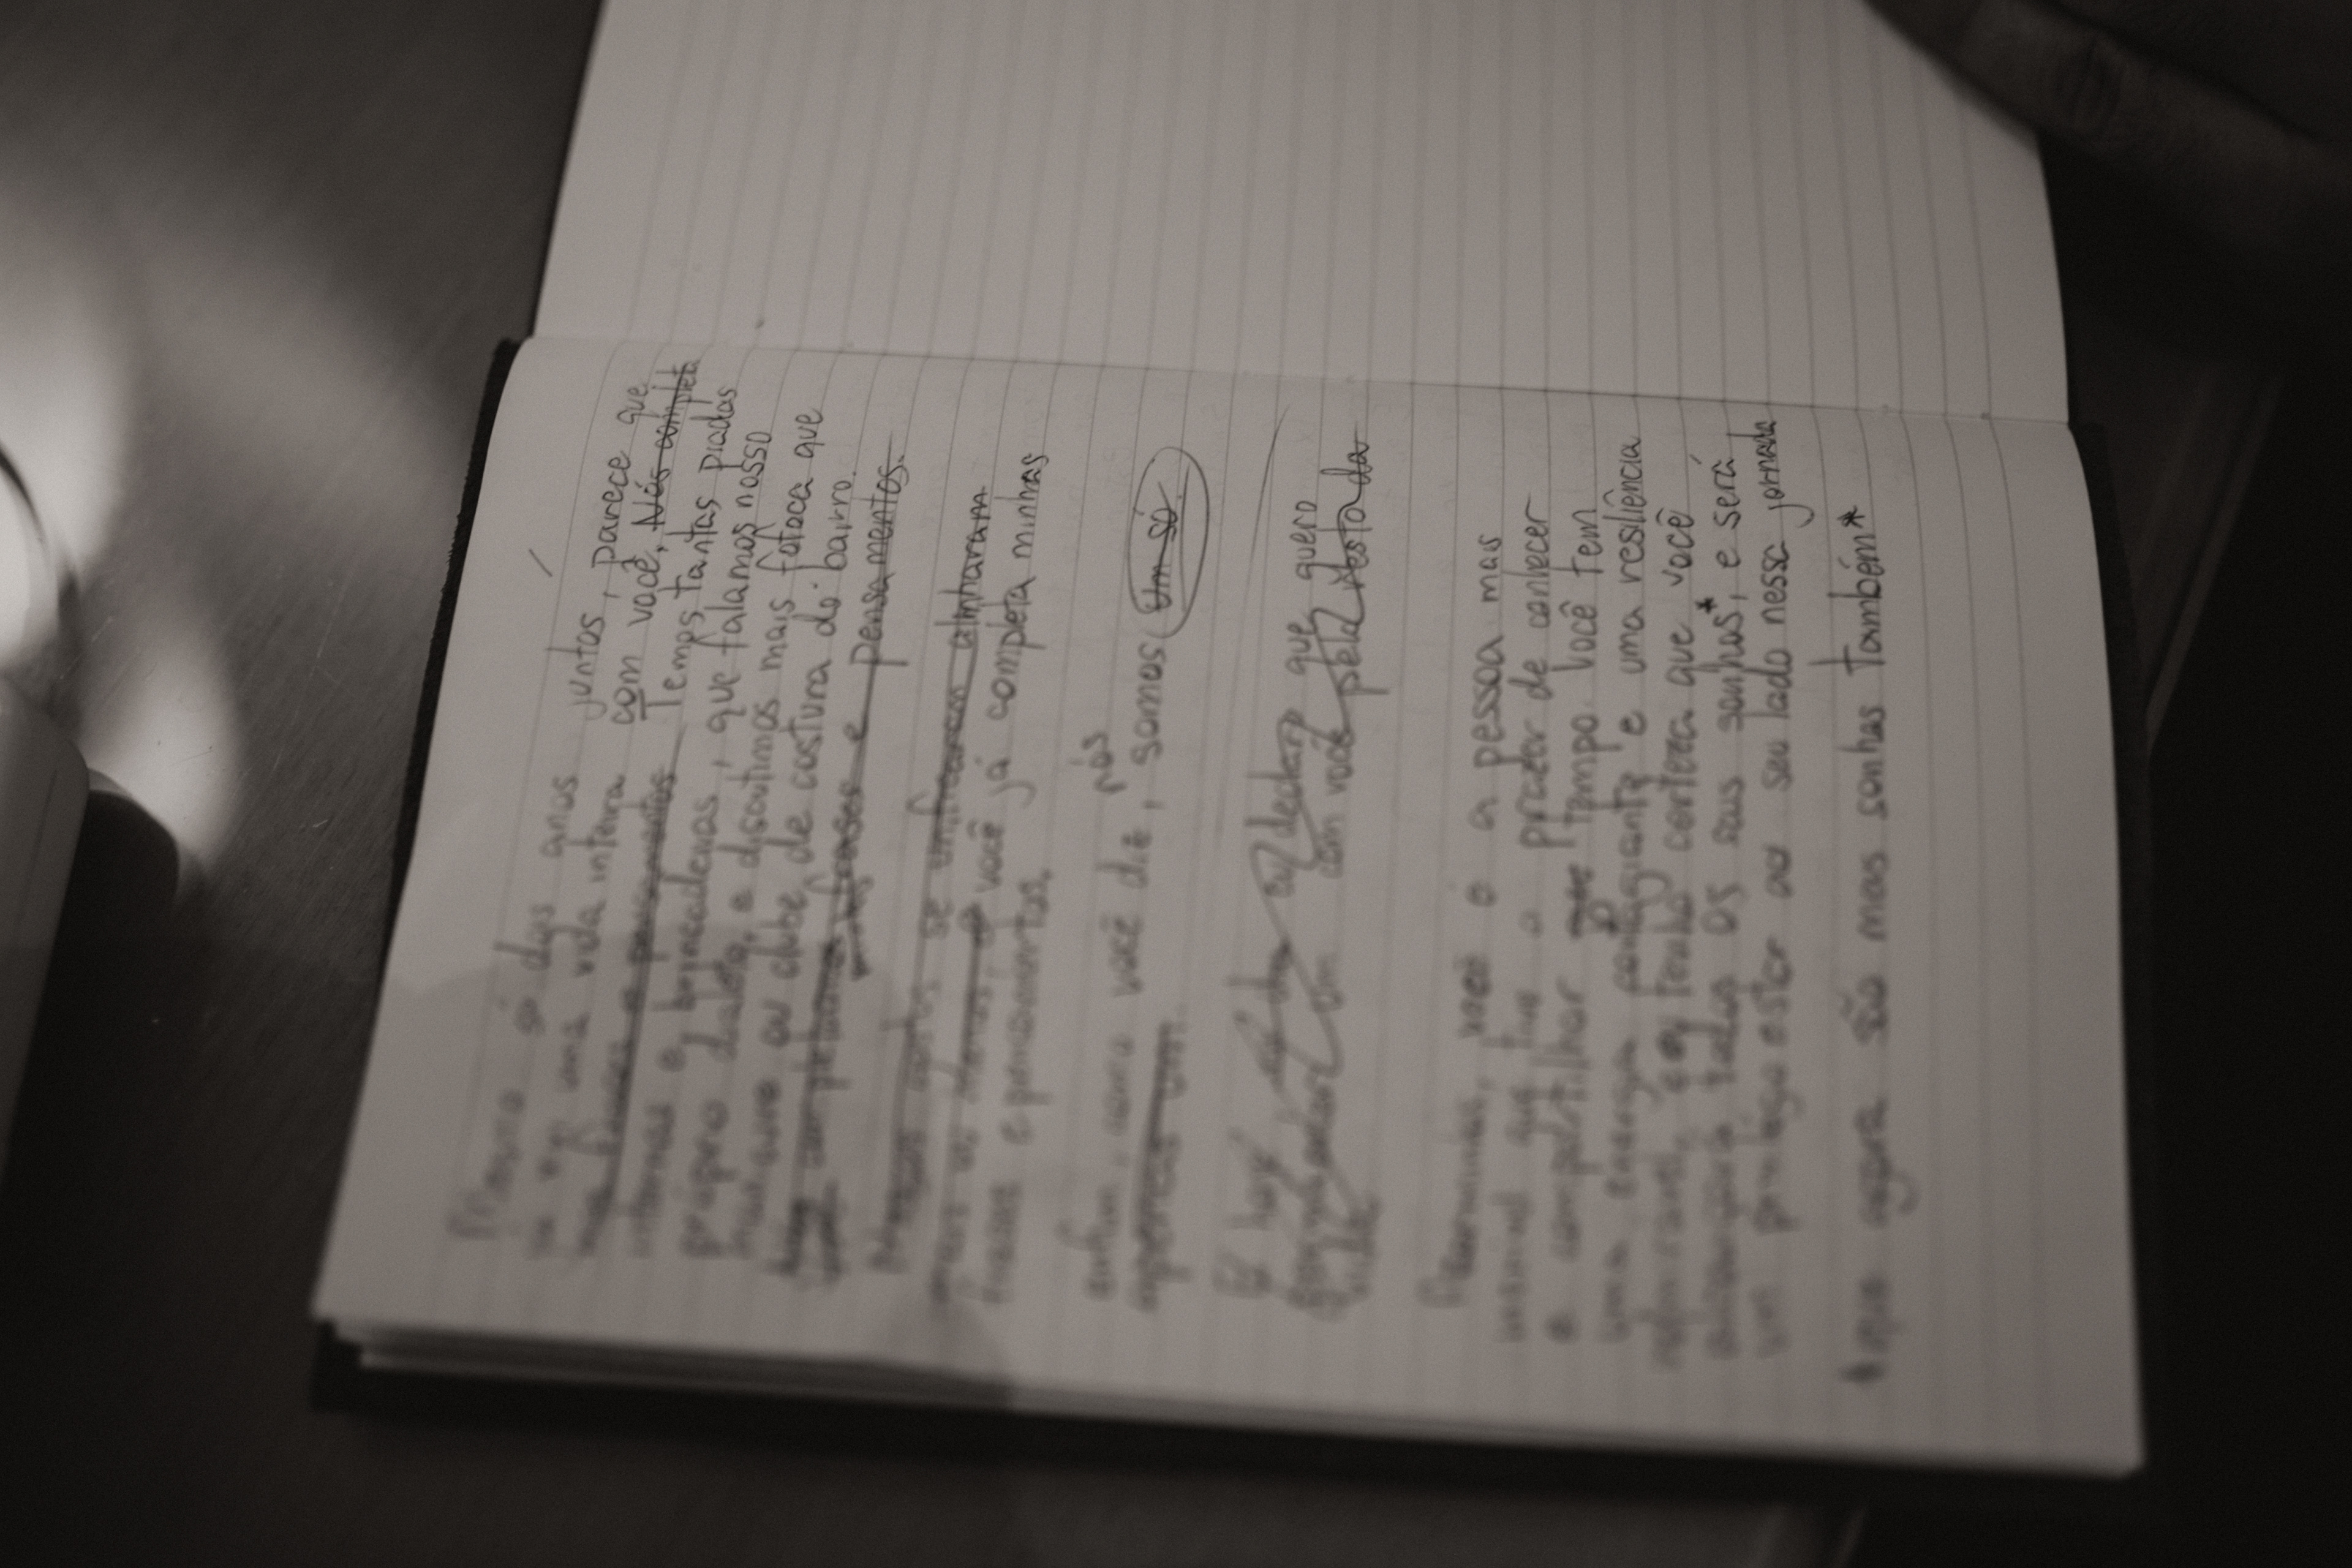 Mesmo só dois anos juntos, parece que
vivi uma vida inteira com você. Nós completa
mos frases e pensamentos Temos tantas piadas
internas e brincadeiras, que falamos nosso
próprio dialeto, e discutimos mais fofoca que
ou clube de costura do bairro.
frases e pensamentos.
se unificaram alinharam
você já completa minhas
frases e pensamentos.
enfim, como você diz, nós somos um só.
apenas um.
E hoje, eu declaro que quero
com você pela resto da
vida
você é a pessoa mais
incrível que tive o prazer de conhecer
e compartilhar que tempo. Você tem
uma energia contagiante e uma resiliência
eu tenho certeza que você
alcançará todos os seus sonhos*, e será
um privilégio estar ao seu lado nessa jornada
*que agora são meus sonhos também*